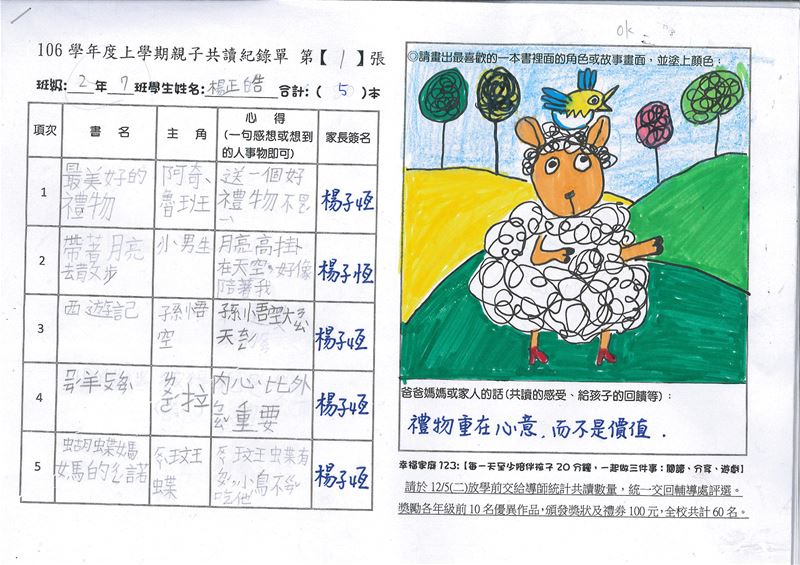 ok
106 學年度上學期親子共讀紀錄單 第【 1 】張
班級: 2 年 7 班學生姓名: 楊正皓 合計:( 5 )本
項次
書 名
主 角
心 得
(一句感想或想到
的人事物即可)
家長簽名
1
最美好的
禮物
阿奇、
魯班
送一個好
禮物不是
楊子恆
2
帶著月亮
去散步
小男生
月亮高掛
在天空,好像
陪著我
楊子恆
3
西遊記
孫悟
空
孫悟空大ㄋㄠ
天宮
楊子恆
4
拉
內心比外
重要
楊子恆
5
蝴蝶媽
媽的ㄔㄥ諾
玟王
蝶
玟王蝶有
小鳥不
吃他
楊子恆
◎請畫出最喜歡的一本書裡面的角色或故事畫面,並塗上顏色:
爸爸媽媽或家人的話(共讀的感受、給孩子的回饋等):
禮物重在心意,而不是價值.
幸福家庭 123:【每一天至少陪伴孩子 20 分鐘,一起做三件事:閱讀、分享、遊戲】
請於 12/5(二)放學前交給導師統計共讀數量,統一交回輔導處評選。
獎勵各年級前 10 名優異作品,頒發獎狀及禮券 100 元,全校共計 60 名。